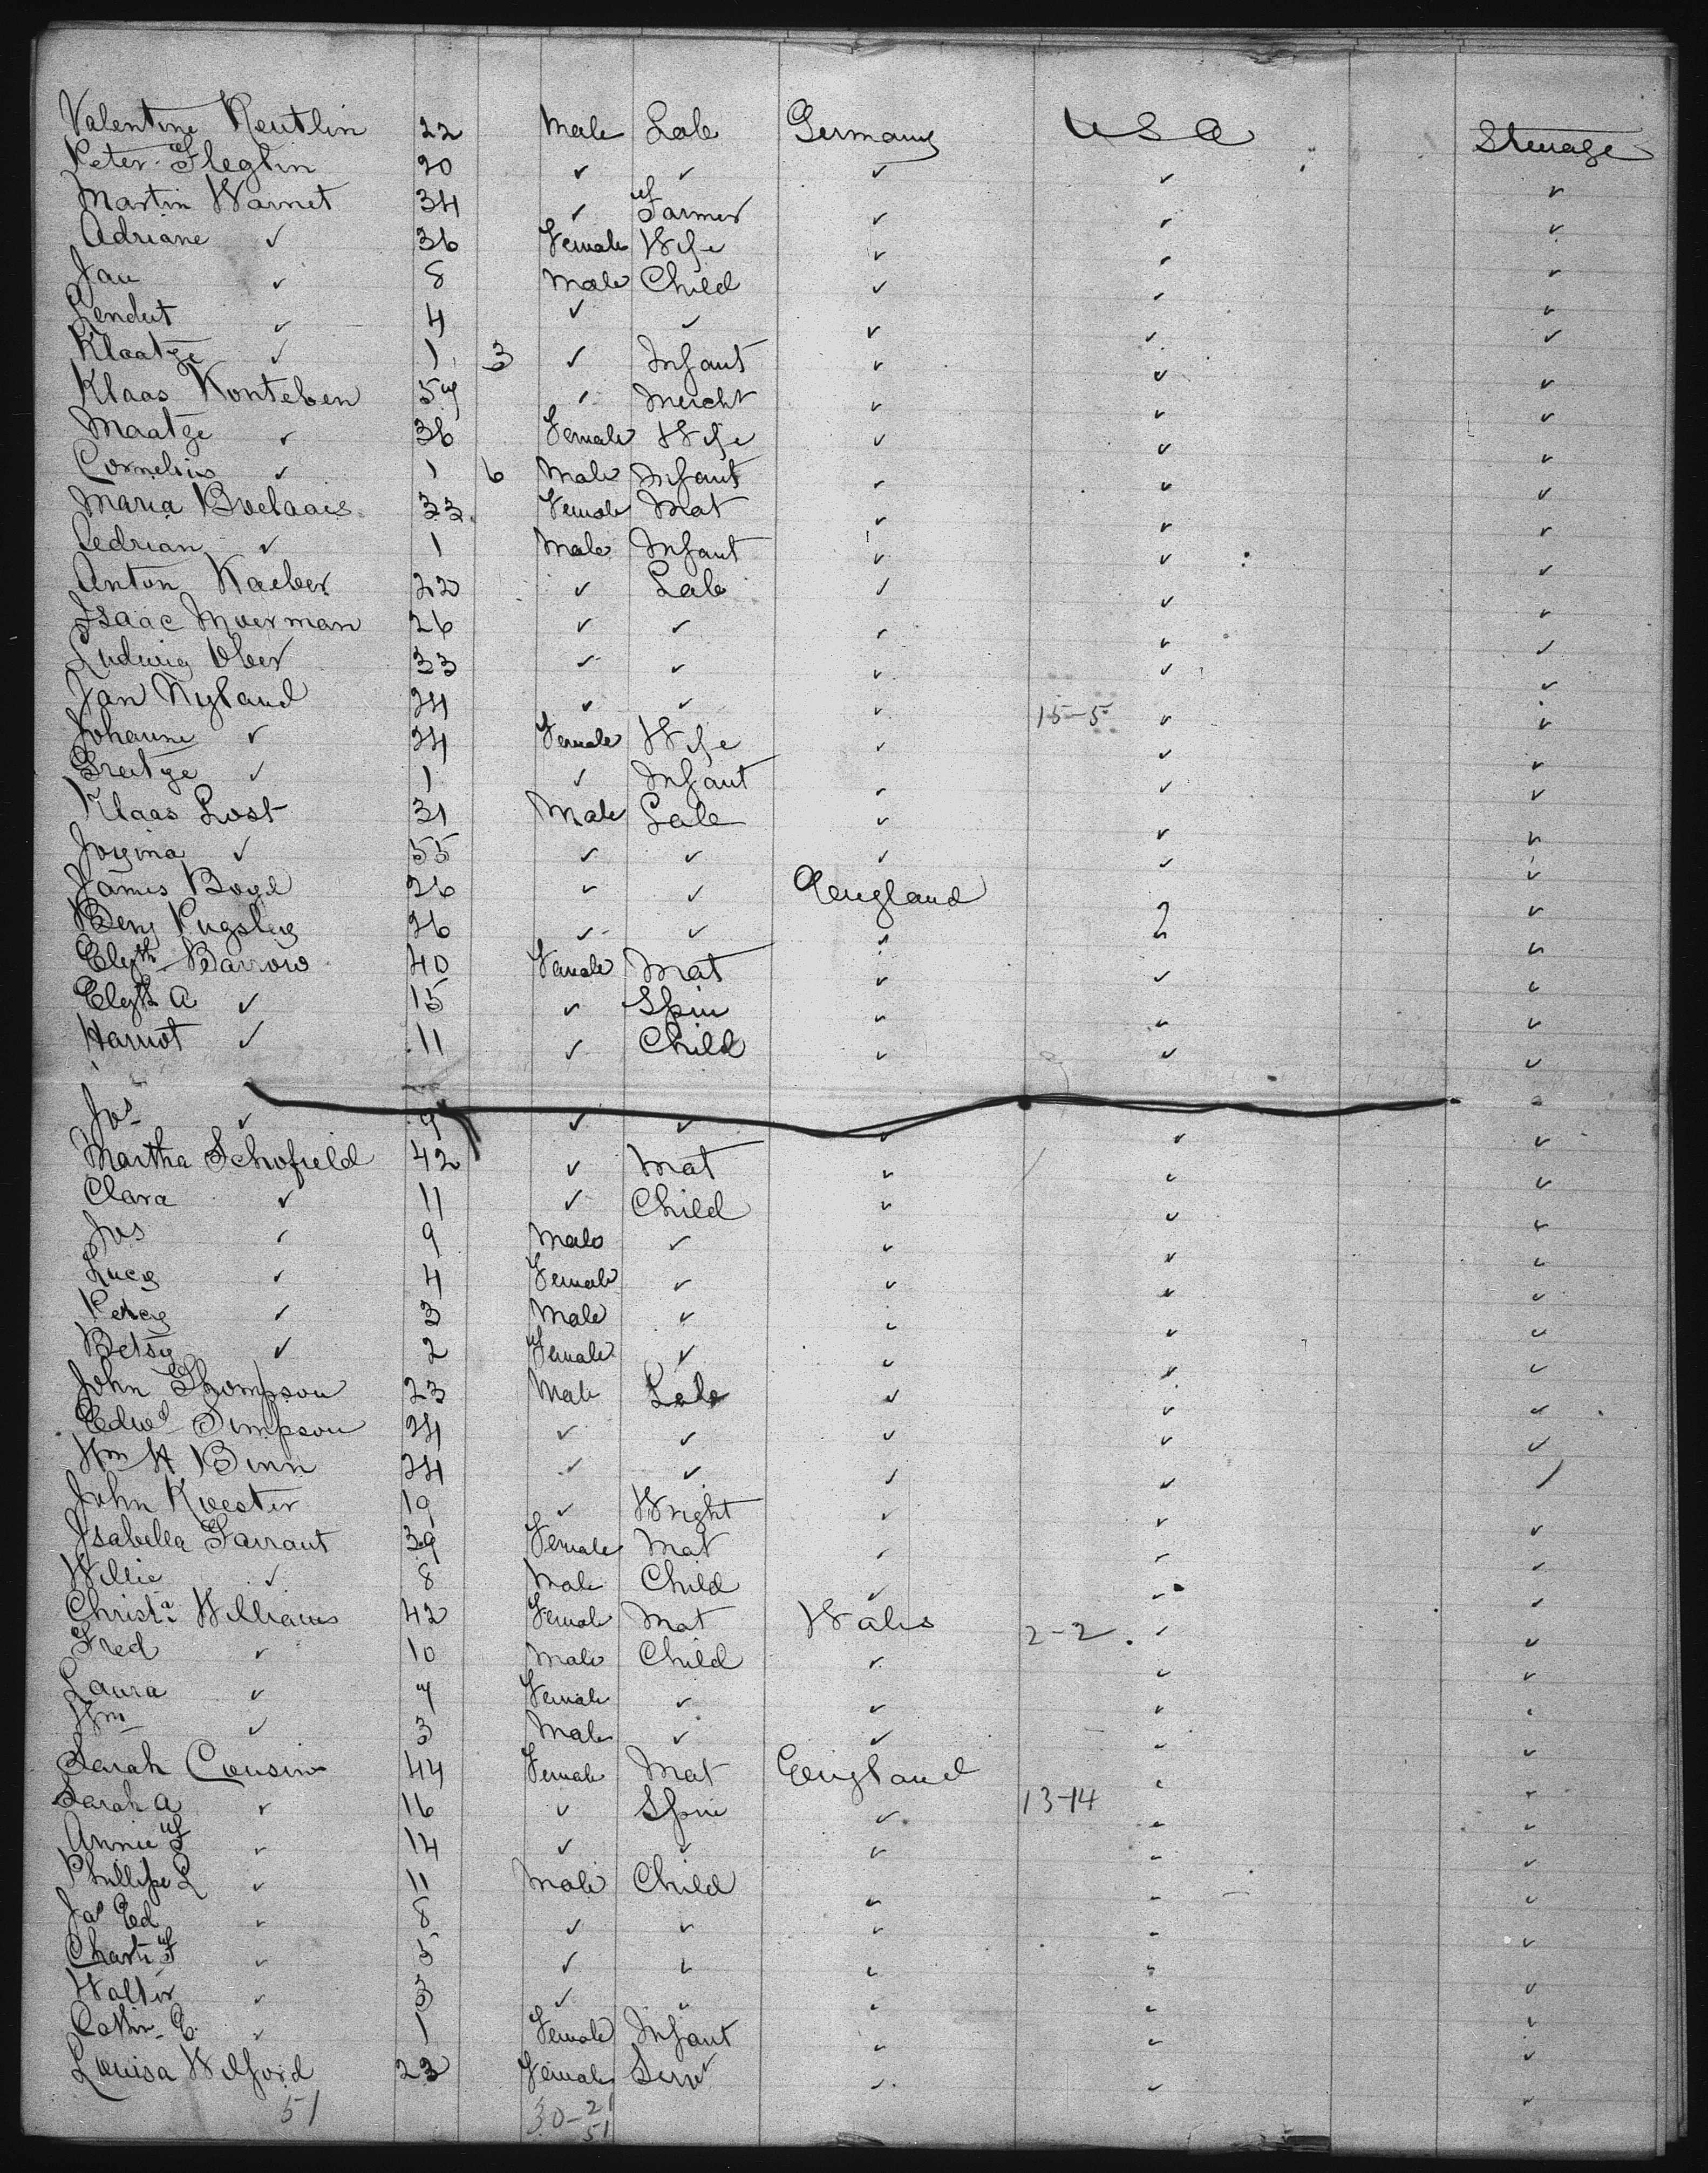 Valentine Reutlin 22 Male Lab Germany U S A Steerage
Peter Fleglin 20 ✓ ✓ ✓ ✓ ✓
Martin Warnet 34 ✓ Farmer ✓ ✓ ✓
Adriane ✓ 36 Female Wife ✓ ✓ ✓
Jan ✓ 8 Male Child ✓ ✓ ✓
Lendert ✓ 4 ✓ ✓ ✓ ✓ ✓
Klaatze ✓ 1 3 ✓ Infant ✓ ✓ ✓
Klaas Konteben 57 ✓ Mercht ✓ ✓ ✓
Maatze ✓ 36 Female Wife ✓ ✓ ✓
Cornelius ✓ 1 6 Male Infant ✓ ✓ ✓
Maria Broelaais 33 Female Mat ✓ ✓ ✓
Adrian ✓ 1 Male Infant ✓ ✓ ✓
Anton Kaeber 22 ✓ Lab ✓ ✓ ✓
Isaac Moerman 26 ✓ ✓ ✓ ✓ ✓
Ludwig Ober 33 ✓ ✓ ✓ ✓ ✓
Jan Nyland 24 ✓ ✓ ✓ 15-5 ✓ ✓
Johanne ✓ 24 Female Wife ✓ ✓ ✓
Greitze ✓ 1 ✓ Infant ✓ ✓ ✓
Klaas Lost 31 Male Lab ✓ ✓ ✓
Jorgina ✓ 55 ✓ ✓ ✓ ✓ ✓
James Boyd 26 ✓ ✓ England ✓
Benj Pugsley 26 ✓ ✓ ✓ ✓ ✓
Elizth Barrow 40 Female Mat ✓ ✓ ✓
Elizth A ✓ 15 ✓ Spin ✓ ✓ ✓
Harriot ✓ 11 ✓ Child ✓ ✓ ✓
Jos ✓ 9 ✓ ✓ ✓ ✓ ✓
Martha Schofield 42 ✓ Mat ✓ ✓ ✓
Clara ✓ 11 ✓ Child ✓ ✓ ✓
Jos ✓ 9 Male ✓ ✓ ✓ ✓
Lucy ✓ 4 Female ✓ ✓ ✓ ✓
Percy ✓ 3 Male ✓ ✓ ✓ ✓
Betsy ✓ 2 Female ✓ ✓ ✓ ✓
John Thompson 23 Male Lab ✓ ✓ ✓
Edwd Simpson 24 ✓ ✓ ✓ ✓ ✓
Wm H Binn 24 ✓ ✓ ✓ ✓ ✓
John Koester 19 ✓ Wright ✓ ✓ ✓
Isabella Garraut 39 Female Mat ✓ ✓ ✓
Willie ✓ 8 Male Child ✓ ✓ ✓
Christa Williams 42 Female Mat Wales 2-2 ✓ ✓
Fred ✓ 10 Male Child ✓ ✓ ✓
Laura ✓ 7 Female ✓ ✓ ✓ ✓
Wm ✓ 3 Male ✓ ✓ ✓ ✓
Sarah Cousins 44 Female Mat England ✓ ✓
Sarah A ✓ 16 ✓ Spin ✓ 13-14 ✓ ✓
Annie F ✓ 14 ✓ ✓ ✓ ✓ ✓
Phillipe L ✓ 11 Male Child ✓ ✓ ✓
Jas Ed ✓ 8 ✓ ✓ ✓ ✓ ✓
F ✓ 5 ✓ ✓ ✓ ✓ ✓
Walter ✓ 3 ✓ ✓ ✓ ✓ ✓
E. ✓ 1 Female Infant ✓ ✓ ✓
Louisa Wilford 23 Female Servt ✓ ✓ ✓
51 30-21
51